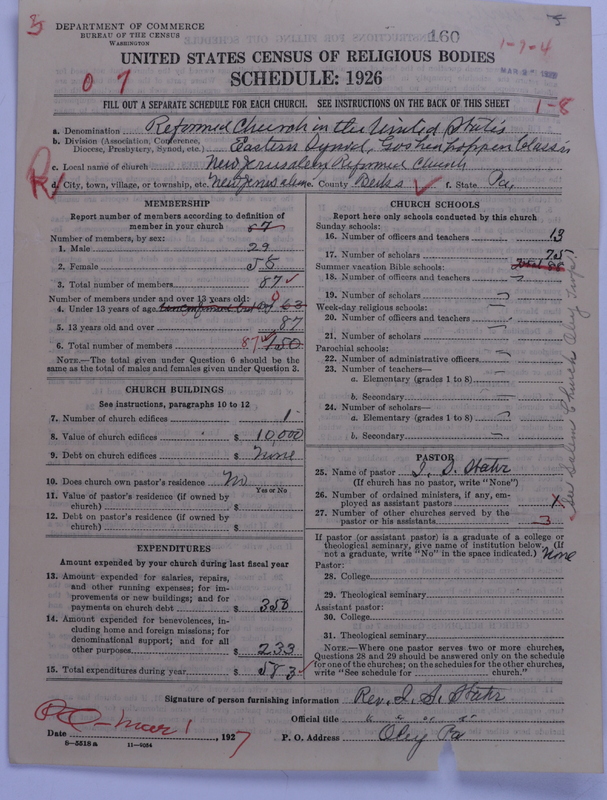 DEPARTMENT OF COMMERCE
BUREAU OF THE CENSUS
WASHINGTON
160
1-7-4
UNITED STATES CENSUS OF RELIGIOUS BODIES
SCHEDULE: 1926
0 7
FILL OUT A SEPARATE SCHEDULE FOR EACH CHURCH. SEE INSTRUCTIONS ON THE BACK OF THIS SHEET
1-8
a. Denomination Reformed Church in the United States
b. Division (Association, Conference, Diocese, Presbytery, Synod, etc.) Eastern Synod, Goshenhoppen Classis
c. Local name of church New Jerusalem Reformed Church
d. City, town, village, or township, etc. New Jerusalem e. County Berks f. State Pa.
MEMBERSHIP
Report number of members according to definition of member in your church 87
Number of members, by sex:
1. Male 29
2. Female 58
3. Total number of members 87
Number of members under and over 13 years old:
4. Under 13 years of age 0 63
5. 13 years old and over 87
6. Total number of members 87 150
NOTE.—The total given under Question 6 should be the same as the total of males and females given under Question 3.
CHURCH BUILDINGS
See instructions, paragraphs 10 to 12
7. Number of church edifices 1
8. Value of church edifices $ 10,000
9. Debt on church edifices $ None
10. Does church own pastor's residence No
Yes or No
11. Value of pastor's residence (if owned by church) $
12. Debt on pastor's residence (if owned by church) $
EXPENDITURES
Amount expended by your church during last fiscal year
13. Amount expended for salaries, repairs, and other running expenses; for improvements or new buildings; and for payments on church debt $ 350
14. Amount expended for benevolences, including home and foreign missions; for denominational support; and for all other purposes $ 233
15. Total expenditures during year $ 583
CHURCH SCHOOLS
Report here only schools conducted by this church
Sunday schools:
16. Number of officers and teachers 13
17. Number of scholars 75
Summer vacation Bible schools: Total 88
18. Number of officers and teachers
19. Number of scholars
Week-day religious schools:
20. Number of officers and teachers
21. Number of scholars
Parochial schools:
22. Number of administrative officers
23. Number of teachers—
a. Elementary (grades 1 to 8)
b. Secondary
24. Number of scholars—
a. Elementary (grades 1 to 8)
b. Secondary
See Salem Church Oley Twp.
PASTOR
25. Name of pastor I. S. Stahr
(If church has no pastor, write "None")
26. Number of ordained ministers, if any, employed as assistant pastors x
27. Number of other churches served by the pastor or his assistants 3
If pastor (or assistant pastor) is a graduate of a college or theological seminary, give name of institution below. (If not a graduate, write "No" in the space indicated.) None
Pastor:
28. College
29. Theological seminary
Assistant pastor:
30. College
31. Theological seminary
NOTE.—Where one pastor serves two or more churches, Questions 28 and 29 should be answered only on the schedule for one of the churches; on the schedules for the other churches, write "See schedule for church."
Signature of person furnishing information Rev. I. S. Stahr
Official title " " " "
Date Mar 1, 1927 P. O. Address Oley Pa
8-5518 a 11-9064